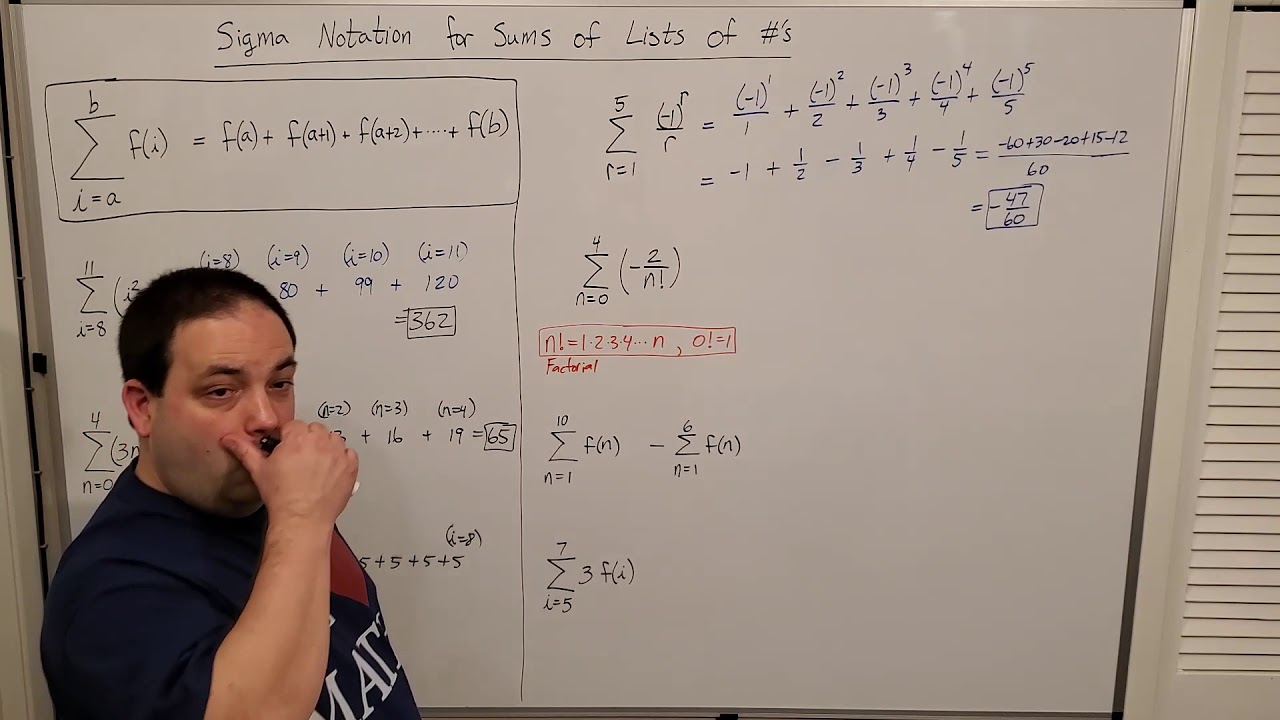 Sigma Notation for Sums of Lists of #'s
b
∑ f(i) = f(a) + f(a+1) + f(a+2) + ····· + f(b)
i=a
11 (i=8) (i=9) (i=10) (i=11)
∑ (i² 80 + 99 + 120
i=8 = 362
4 (n=2) (n=3) (n=4)
∑ (3n + 16 + 19 = 65
n=0
(i=8)
5 + 5 + 5 + 5
5
∑ (-1)^r/r = (-1)^1/1 + (-1)^2/2 + (-1)^3/3 + (-1)^4/4 + (-1)^5/5
r=1
= -1 + 1/2 - 1/3 + 1/4 - 1/5 = -60+30-20+15-12/60
= -47/60
4
∑ (-2/n!)
n=0
n! = 1·2·3·4···n , 0! = 1
Factorial
10 6
∑ f(n) - ∑ f(n)
n=1 n=1
7
∑ 3 f(i)
i=5
MAT